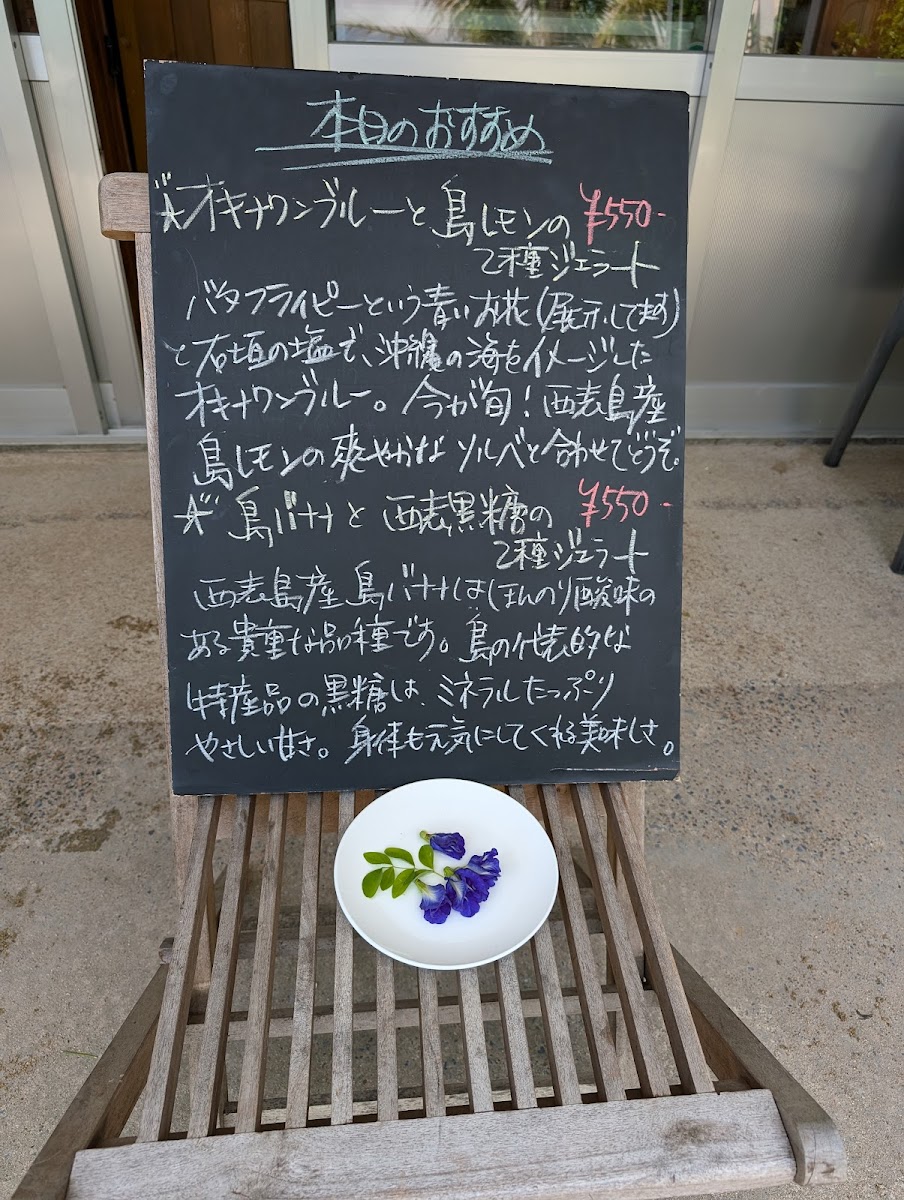 本日のおすすめ
☆オキナワンブルーと島レモンの ¥550-
2種ジェラート
バタフライピーという青いお花(展示してます)
と石垣の塩で、沖縄の海をイメージした
オキナワンブルー。今が旬!西表島産
島レモンの爽やかなソルベと合わせてどうぞ。
☆島バナナと西表黒糖の ¥550-
2種ジェラート
西表島産島バナナはほんのり酸味の
ある貴重な品種です。島の代表的な
特産品の黒糖は、ミネラルたっぷり
やさしい甘さ。身体も元気にしてくれる美味しさ。